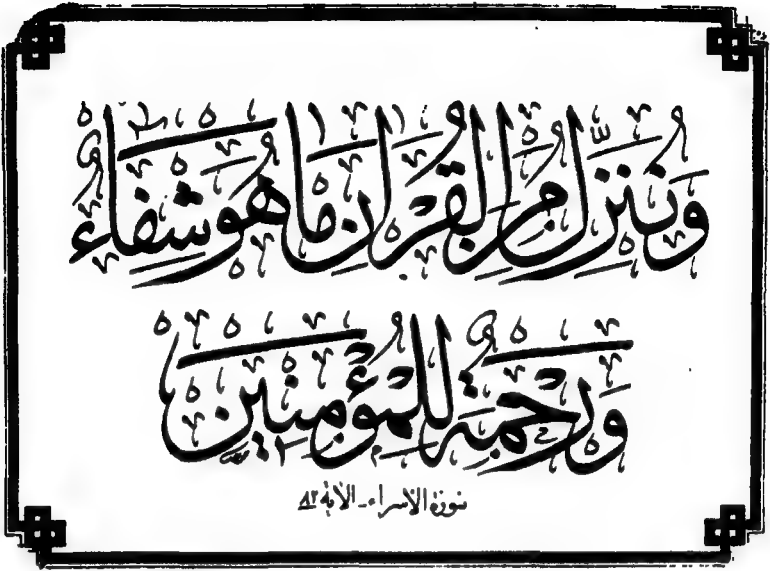 وَنُنَزِّلُ مِنَ القُرآنِ مَا هُوَ شِفَاءٌ
وَرَحْمَةٌ لِلْمُؤْمِنِينَ
سورة الاسراء - الآية ٨٢